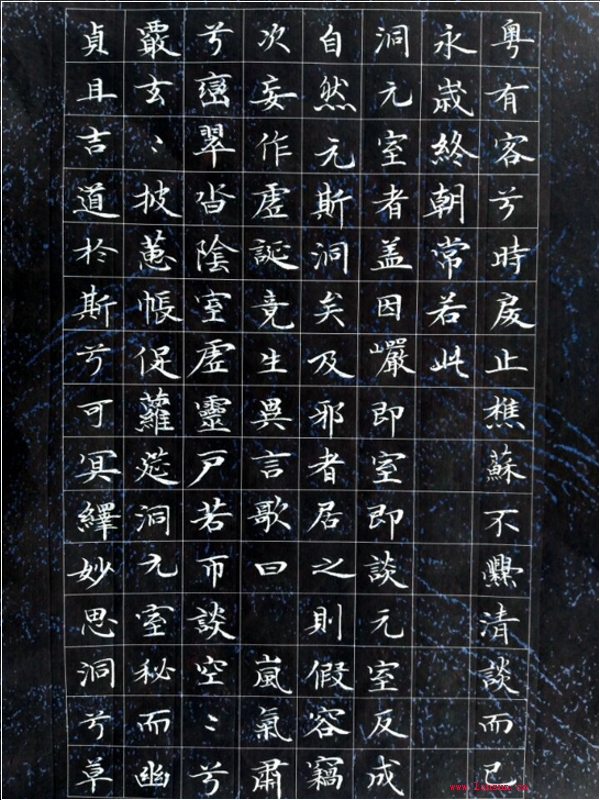 粤有客兮時戾止樵蘇不爨清談而已
永歲終朝常若此
洞元室者盖因巖即室即談元室反成
自然元斯洞矣及邪者居之則假容竊
次妄作虛誕竟生異言歌曰 嵐氣肅
兮巒翠沓陰室虛靈户若而談空〻兮
覈玄〻披蕙帳促蘿筵洞元室秘而幽
貞且吉道於斯兮可冥繹妙思洞兮草